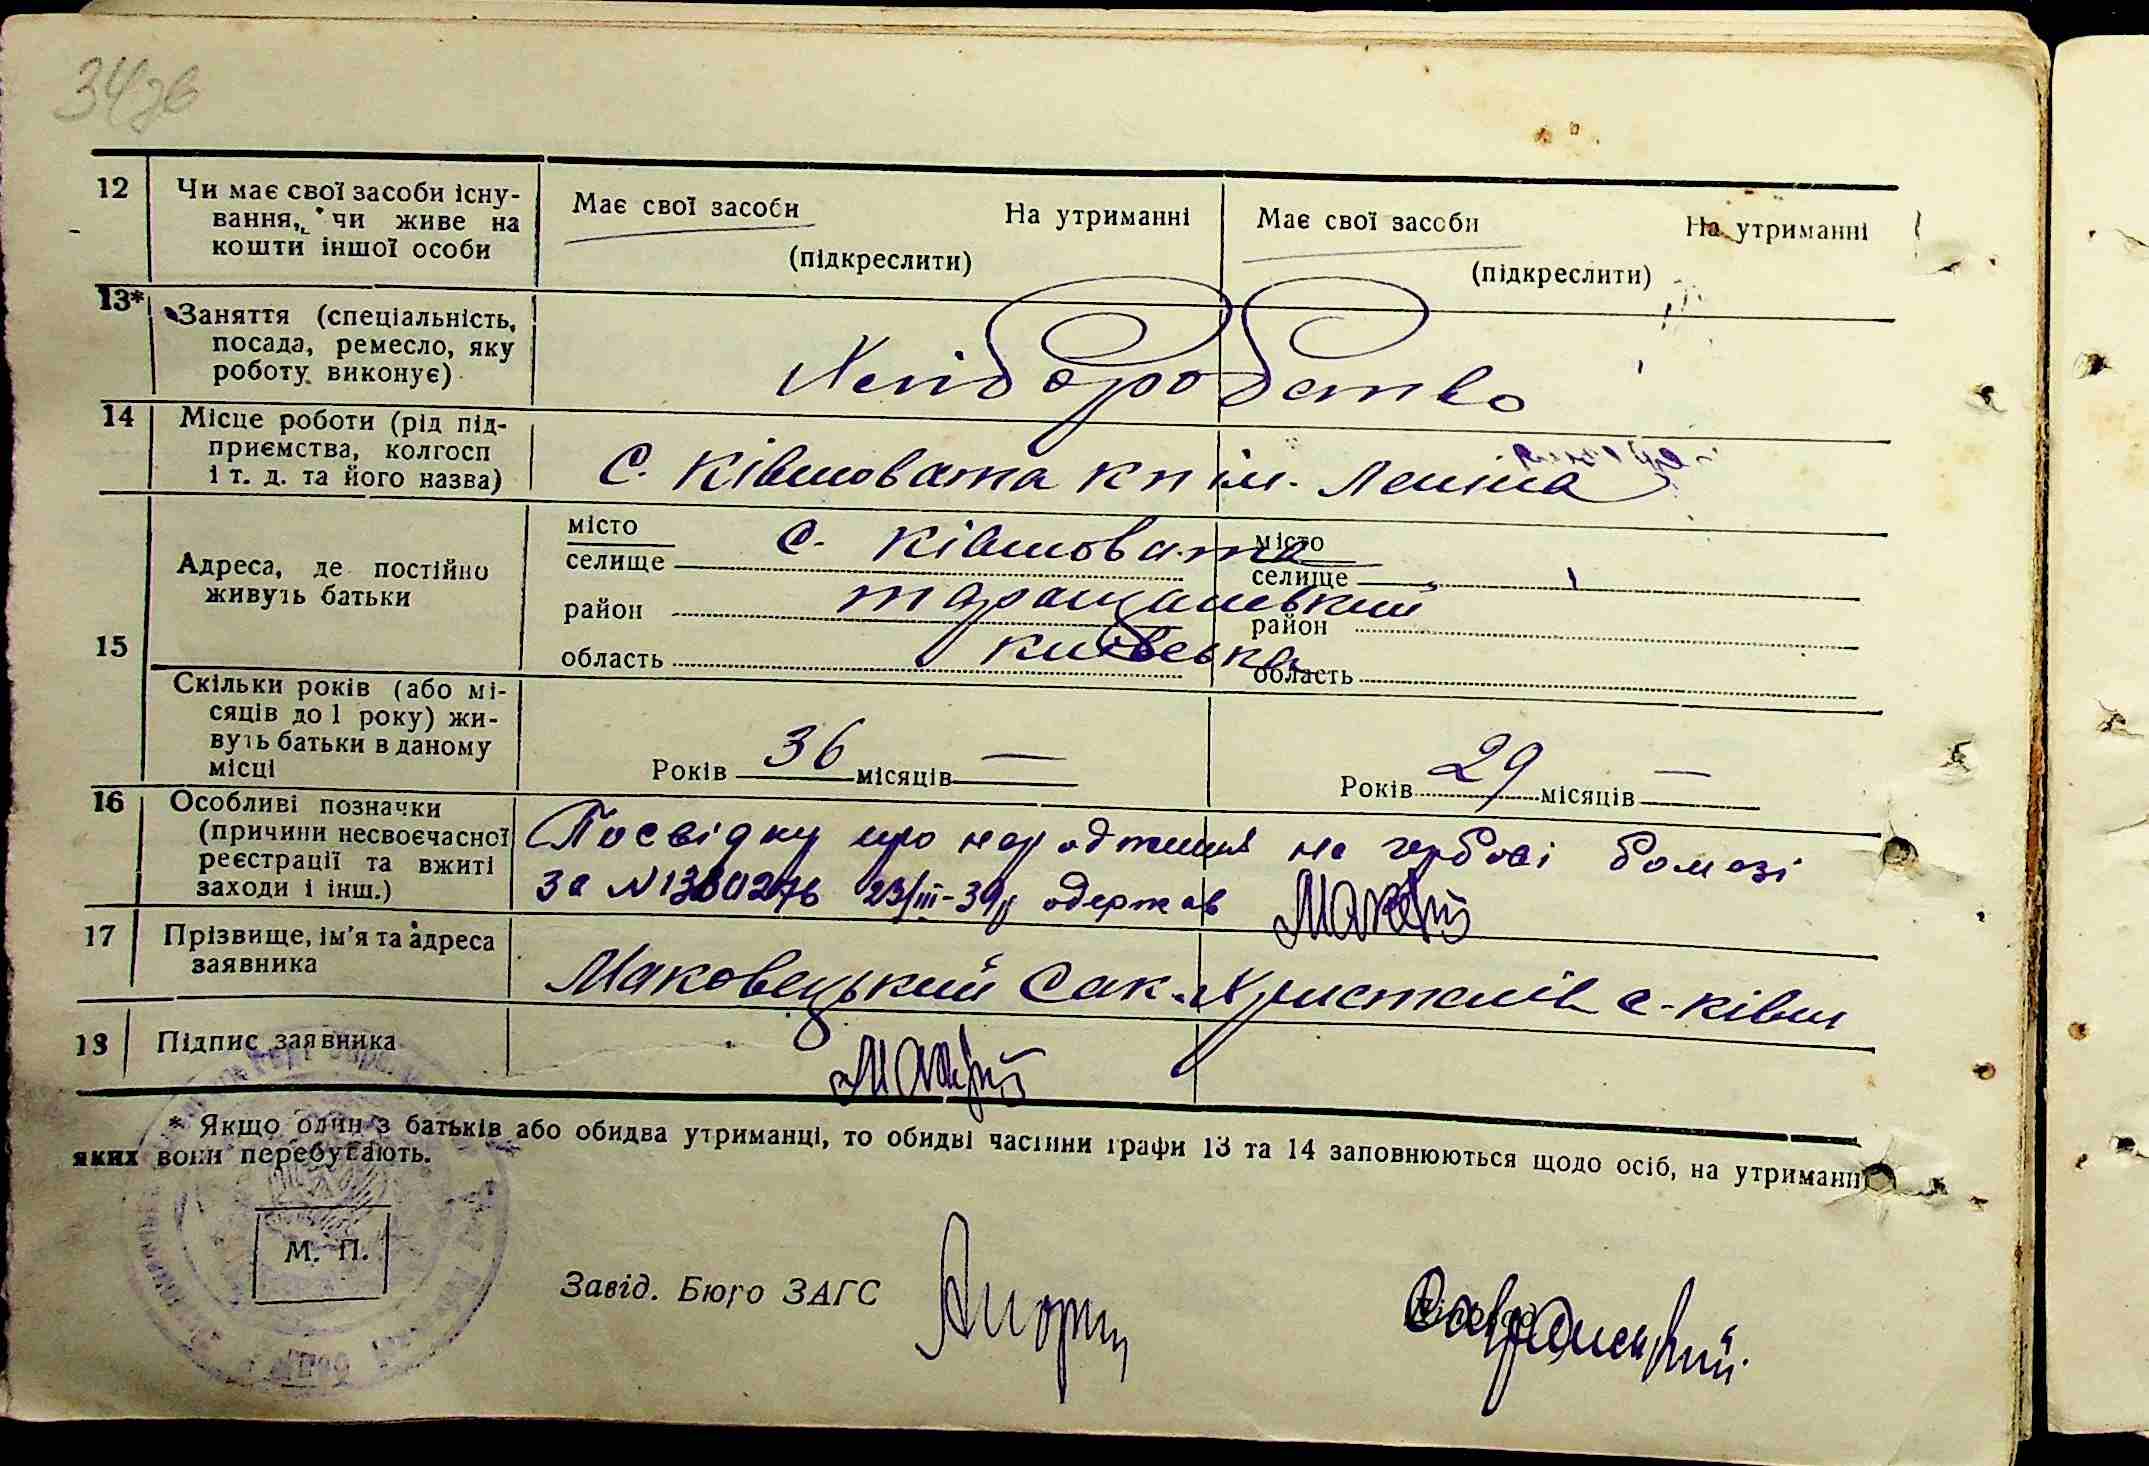 34зв
12 Чи має свої засоби існу-
вання, чи живе на
кошти іншої особи
Має свої засоби На утриманні
(підкреслити)
Має свої засоби На утриманні
(підкреслити)
13* Заняття (спеціальність,
посада, ремесло, яку
роботу виконує)
Хліборобство
14 Місце роботи (рід під-
приємства, колгосп
і т. д. та його назва)
С. Ківшовата кп ім. Леніна
15
Адреса, де постійно
живуть батьки
місто
селище с. Ківшовата
район таращанський
область київська
місто
селище
район
область
Скільки років (або мі-
сяців до 1 року) жи-
вуть батьки в даному
місці
Років 36 місяців —
Років 29 місяців —
16 Особливі позначки
(причини несвоєчасної
реєстрації та вжиті
заходи і інш.)
Посвідку про народження на гербові бомазі
за N 1360276 23/III-39р одержав
17 Прізвище, ім'я та адреса
заявника
Маковецький Сак. Христанів с-ківш
18 Підпис заявника
* Якщо один з батьків або обидва утриманці, то обидві частини графи 13 та 14 заповнюються щодо осіб, на утриманні
яких вони перебувають.
М. П.
Завід. Бюро ЗАГС